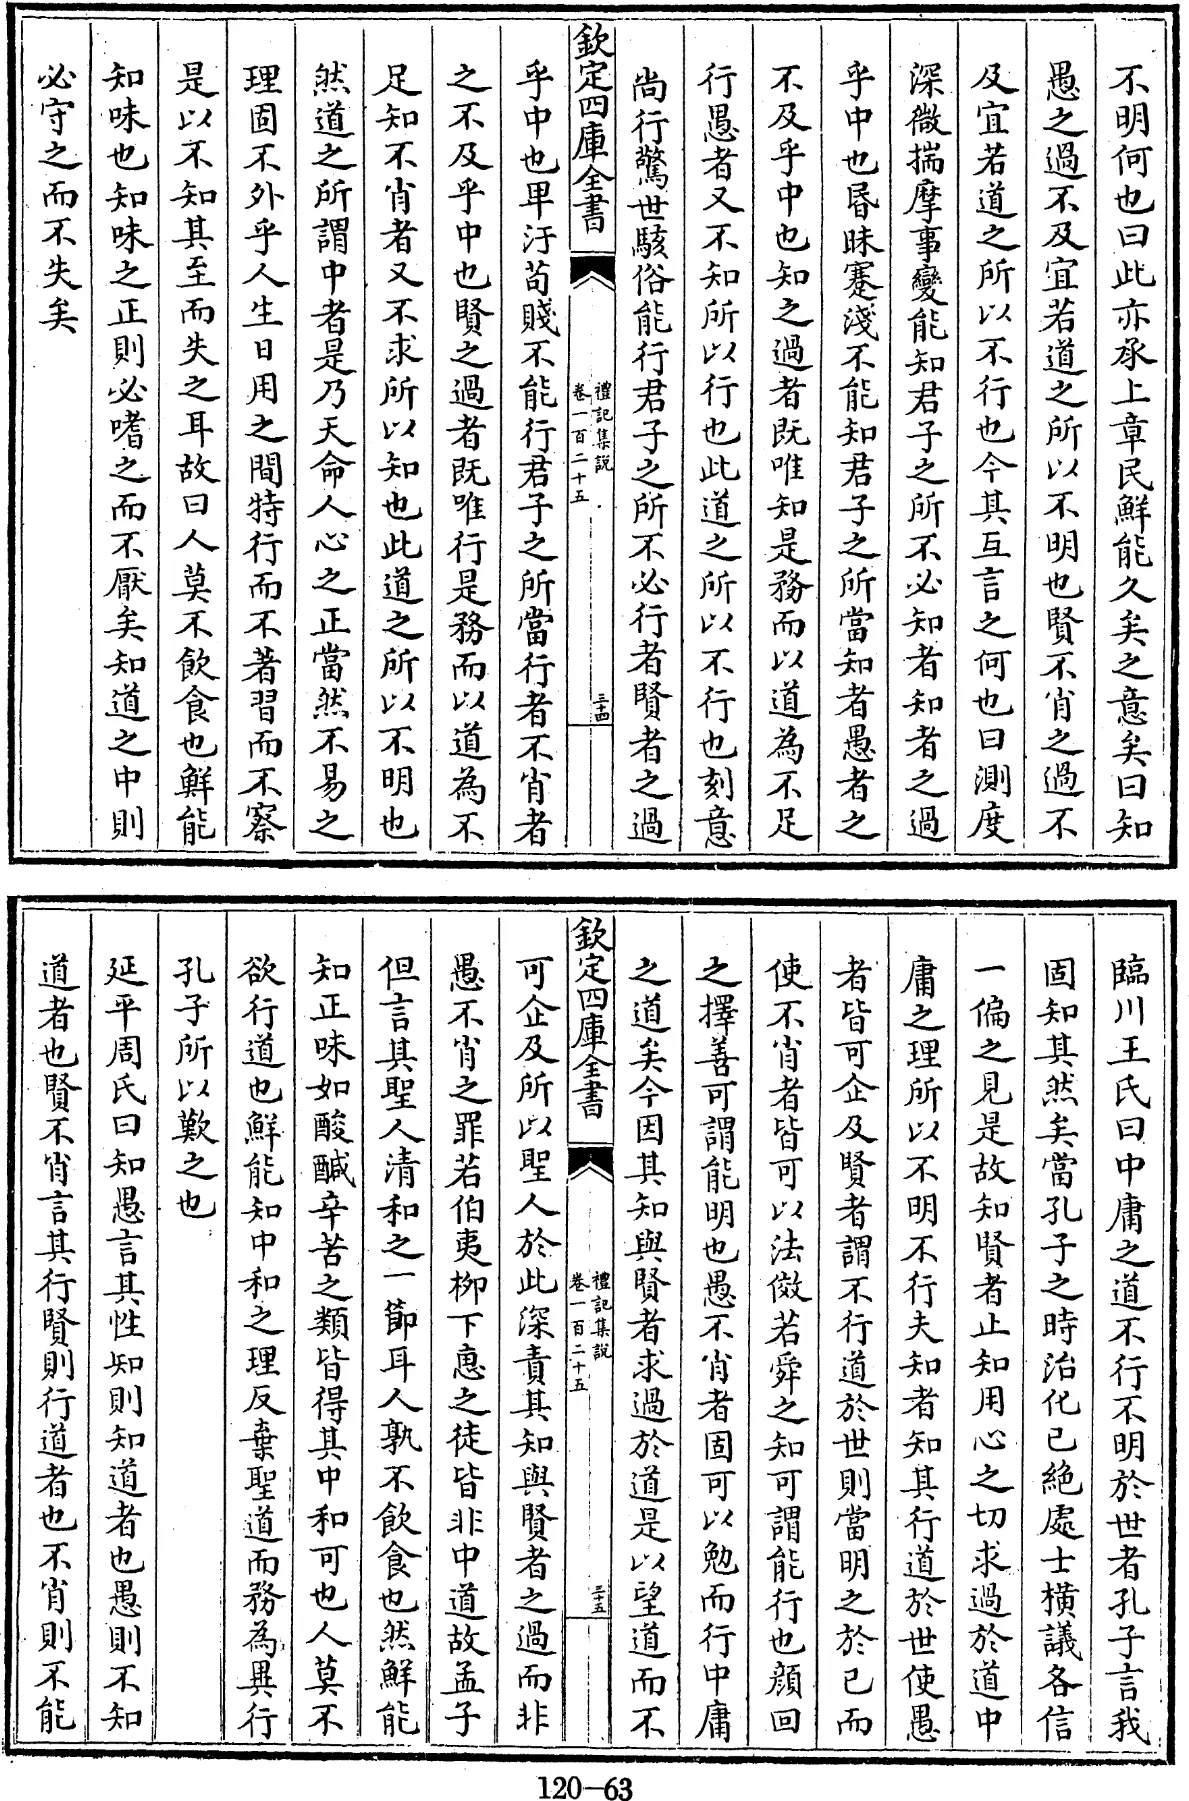 不明何也曰此亦承上章民鮮能久矣之意矣曰知
愚之過不及宜若道之所以不明也賢不肖之過不
及宜若道之所以不行也今其互言之何也曰測度
深微揣摩事變能知君子之所不必知者知者之過
乎中也昬昧蹇淺不能知君子之所當知者愚者之
不及乎中也知之過者既唯知是務而以道為不足
行愚者又不知所以行也此道之所以不行也刻意
尚行驚世駭俗能行君子之所不必行者賢者之過
欽定四庫全書
禮記集說
卷一百二十五
三十四
乎中也卑汙苟賤不能行君子之所當行者不肖者
之不及乎中也賢之過者既唯行是務而以道為不
足知不肖者又不求所以知也此道之所以不明也
然道之所謂中者是乃天命人心之正當然不易之
理固不外乎人生日用之間特行而不著習而不察
是以不知其至而失之耳故曰人莫不飲食也鮮能
知味也知味之正則必嗜之而不厭矣知道之中則
必守之而不失矣
臨川王氏曰中庸之道不行不明於世者孔子言我
固知其然矣當孔子之時治化已絶處士橫議各信
一偏之見是故知賢者止知用心之切求過於道中
庸之理所以不明不行夫知者知其行道於世使愚
者皆可企及賢者謂不行道於世則當明之於已而
使不肖者皆可以法傚若舜之知可謂能行也顔回
之擇善可謂能明也愚不肖者固可以勉而行中庸
之道矣今因其知與賢者求過於道是以望道而不
欽定四庫全書
禮記集說
卷一百二十五
三十五
可企及所以聖人於此深責其知與賢者之過而非
愚不肖之罪若伯夷柳下惠之徒皆非中道故孟子
但言其聖人清和之一節耳人孰不飲食也然鮮能
知正味如酸醎辛苦之類皆得其中和可也人莫不
欲行道也鮮能知中和之理反棄聖道而務為異行
孔子所以歎之也
延平周氏曰知愚言其性知則知道者也愚則不知
道者也賢不肖言其行賢則行道者也不肖則不能
120-63